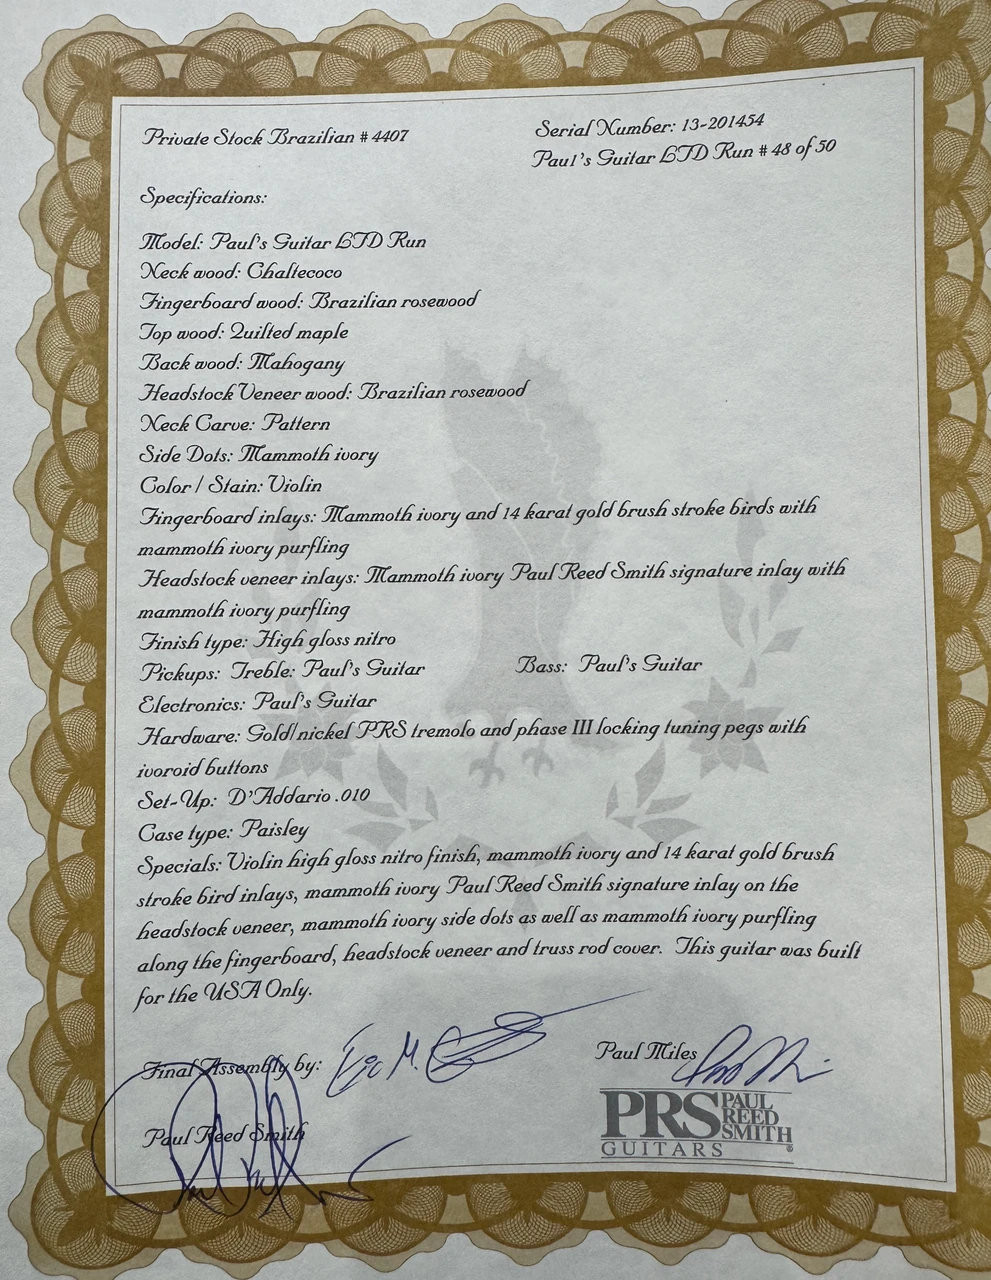 Private Stock Brazilian # 4407
Serial Number: 13-201454
Paul's Guitar LTD Run # 48 of 50
Specifications:
Model: Paul's Guitar LTD Run
Neck wood: Chaltecoco
Fingerboard wood: Brazilian rosewood
Top wood: Quilted maple
Back wood: Mahogany
Headstock Veneer wood: Brazilian rosewood
Neck Carve: Pattern
Side Dots: Mammoth ivory
Color / Stain: Violin
Fingerboard inlays: Mammoth ivory and 14 karat gold brush stroke birds with
mammoth ivory purfling
Headstock veneer inlays: Mammoth ivory Paul Reed Smith signature inlay with
mammoth ivory purfling
Finish type: High gloss nitro
Pickups: Treble: Paul's Guitar Bass: Paul's Guitar
Electronics: Paul's Guitar
Hardware: Gold/nickel PRS tremolo and phase III locking tuning pegs with
ivoroid buttons
Set-Up: D'Addario .010
Case type: Paisley
Specials: Violin high gloss nitro finish, mammoth ivory and 14 karat gold brush
stroke bird inlays, mammoth ivory Paul Reed Smith signature inlay on the
headstock veneer, mammoth ivory side dots as well as mammoth ivory purfling
along the fingerboard, headstock veneer and truss rod cover. This guitar was built
for the USA Only.
Final Assembly by:
Paul Miles
Paul Reed Smith
PRS PAUL REED SMITH
GUITARS